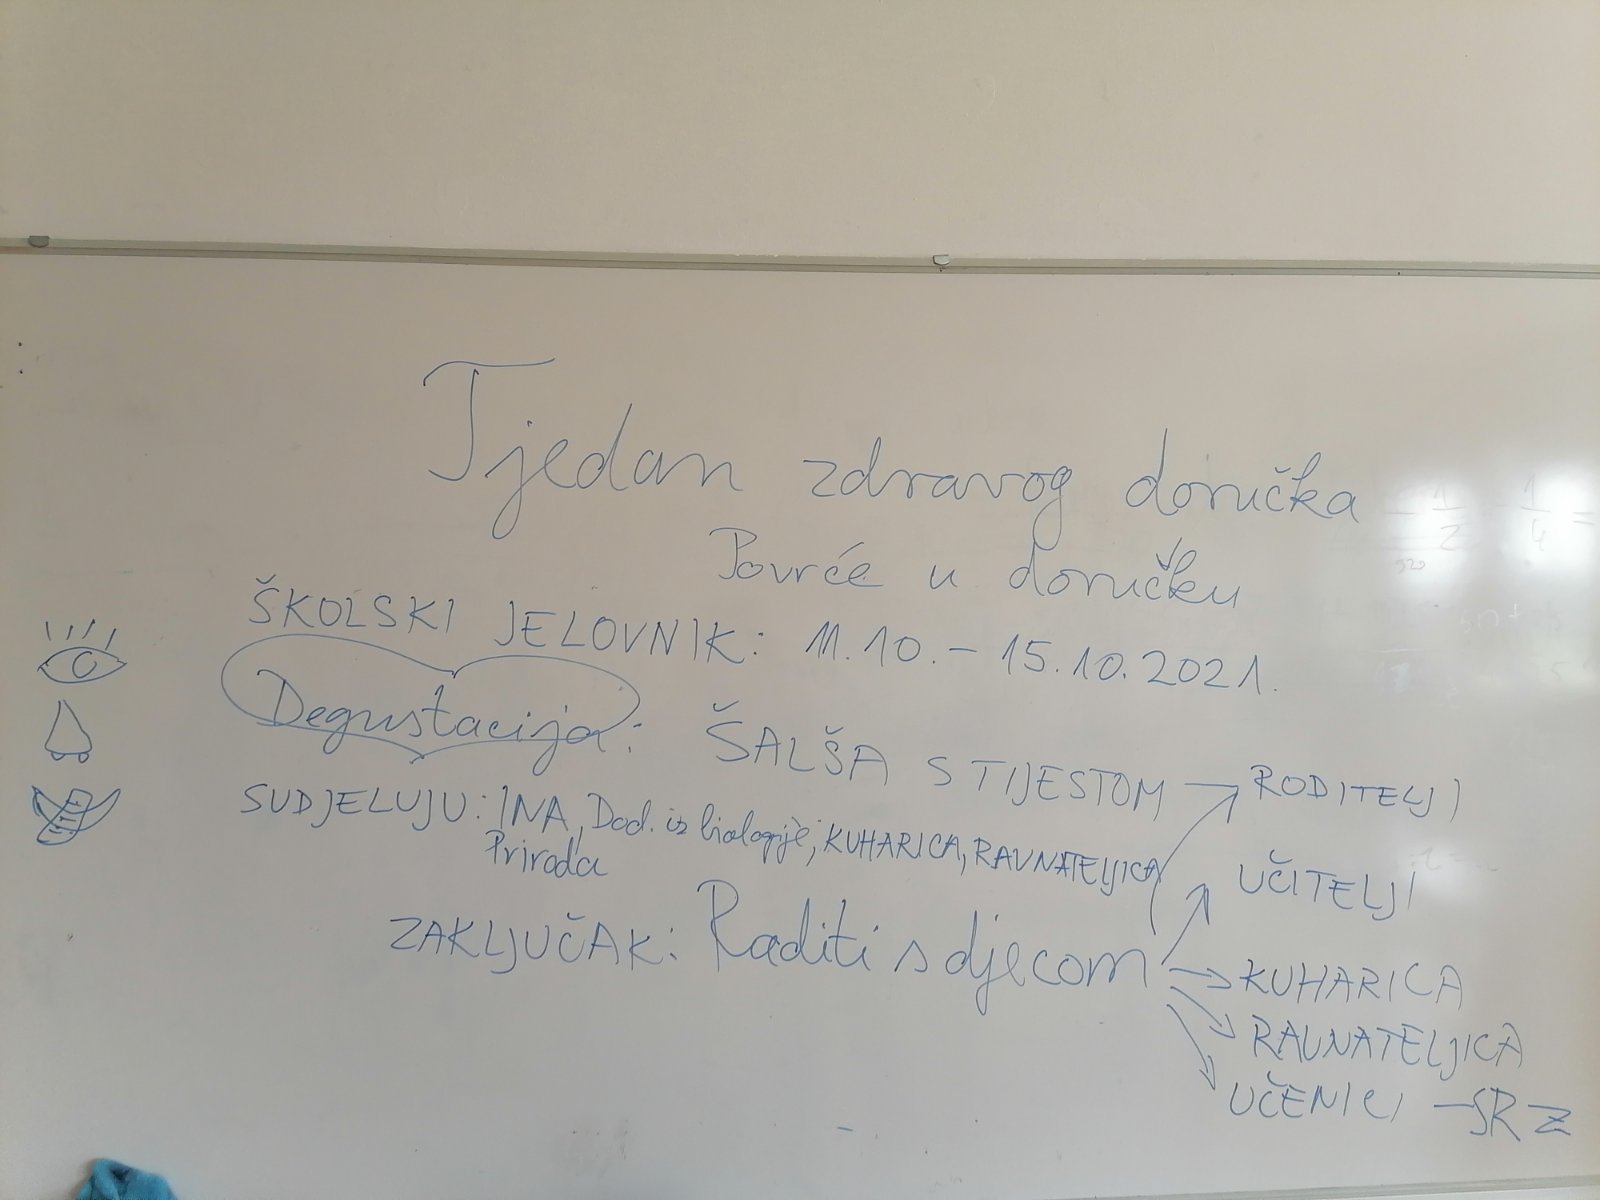 Tjedan zdravog doručka
Povrće u doručku
ŠKOLSKI JELOVNIK: 11.10. – 15.10.2021.
Degustacija: ŠALŠA S TIJESTOM → RODITELJI
SUDJELUJU: INA, Dod. iz biologije, KUHARICA, RAVNATELJICA
Priroda
UČITELJI
ZAKLJUČAK: Raditi s djecom
KUHARICA
RAVNATELJICA
UČENICI – SRZ